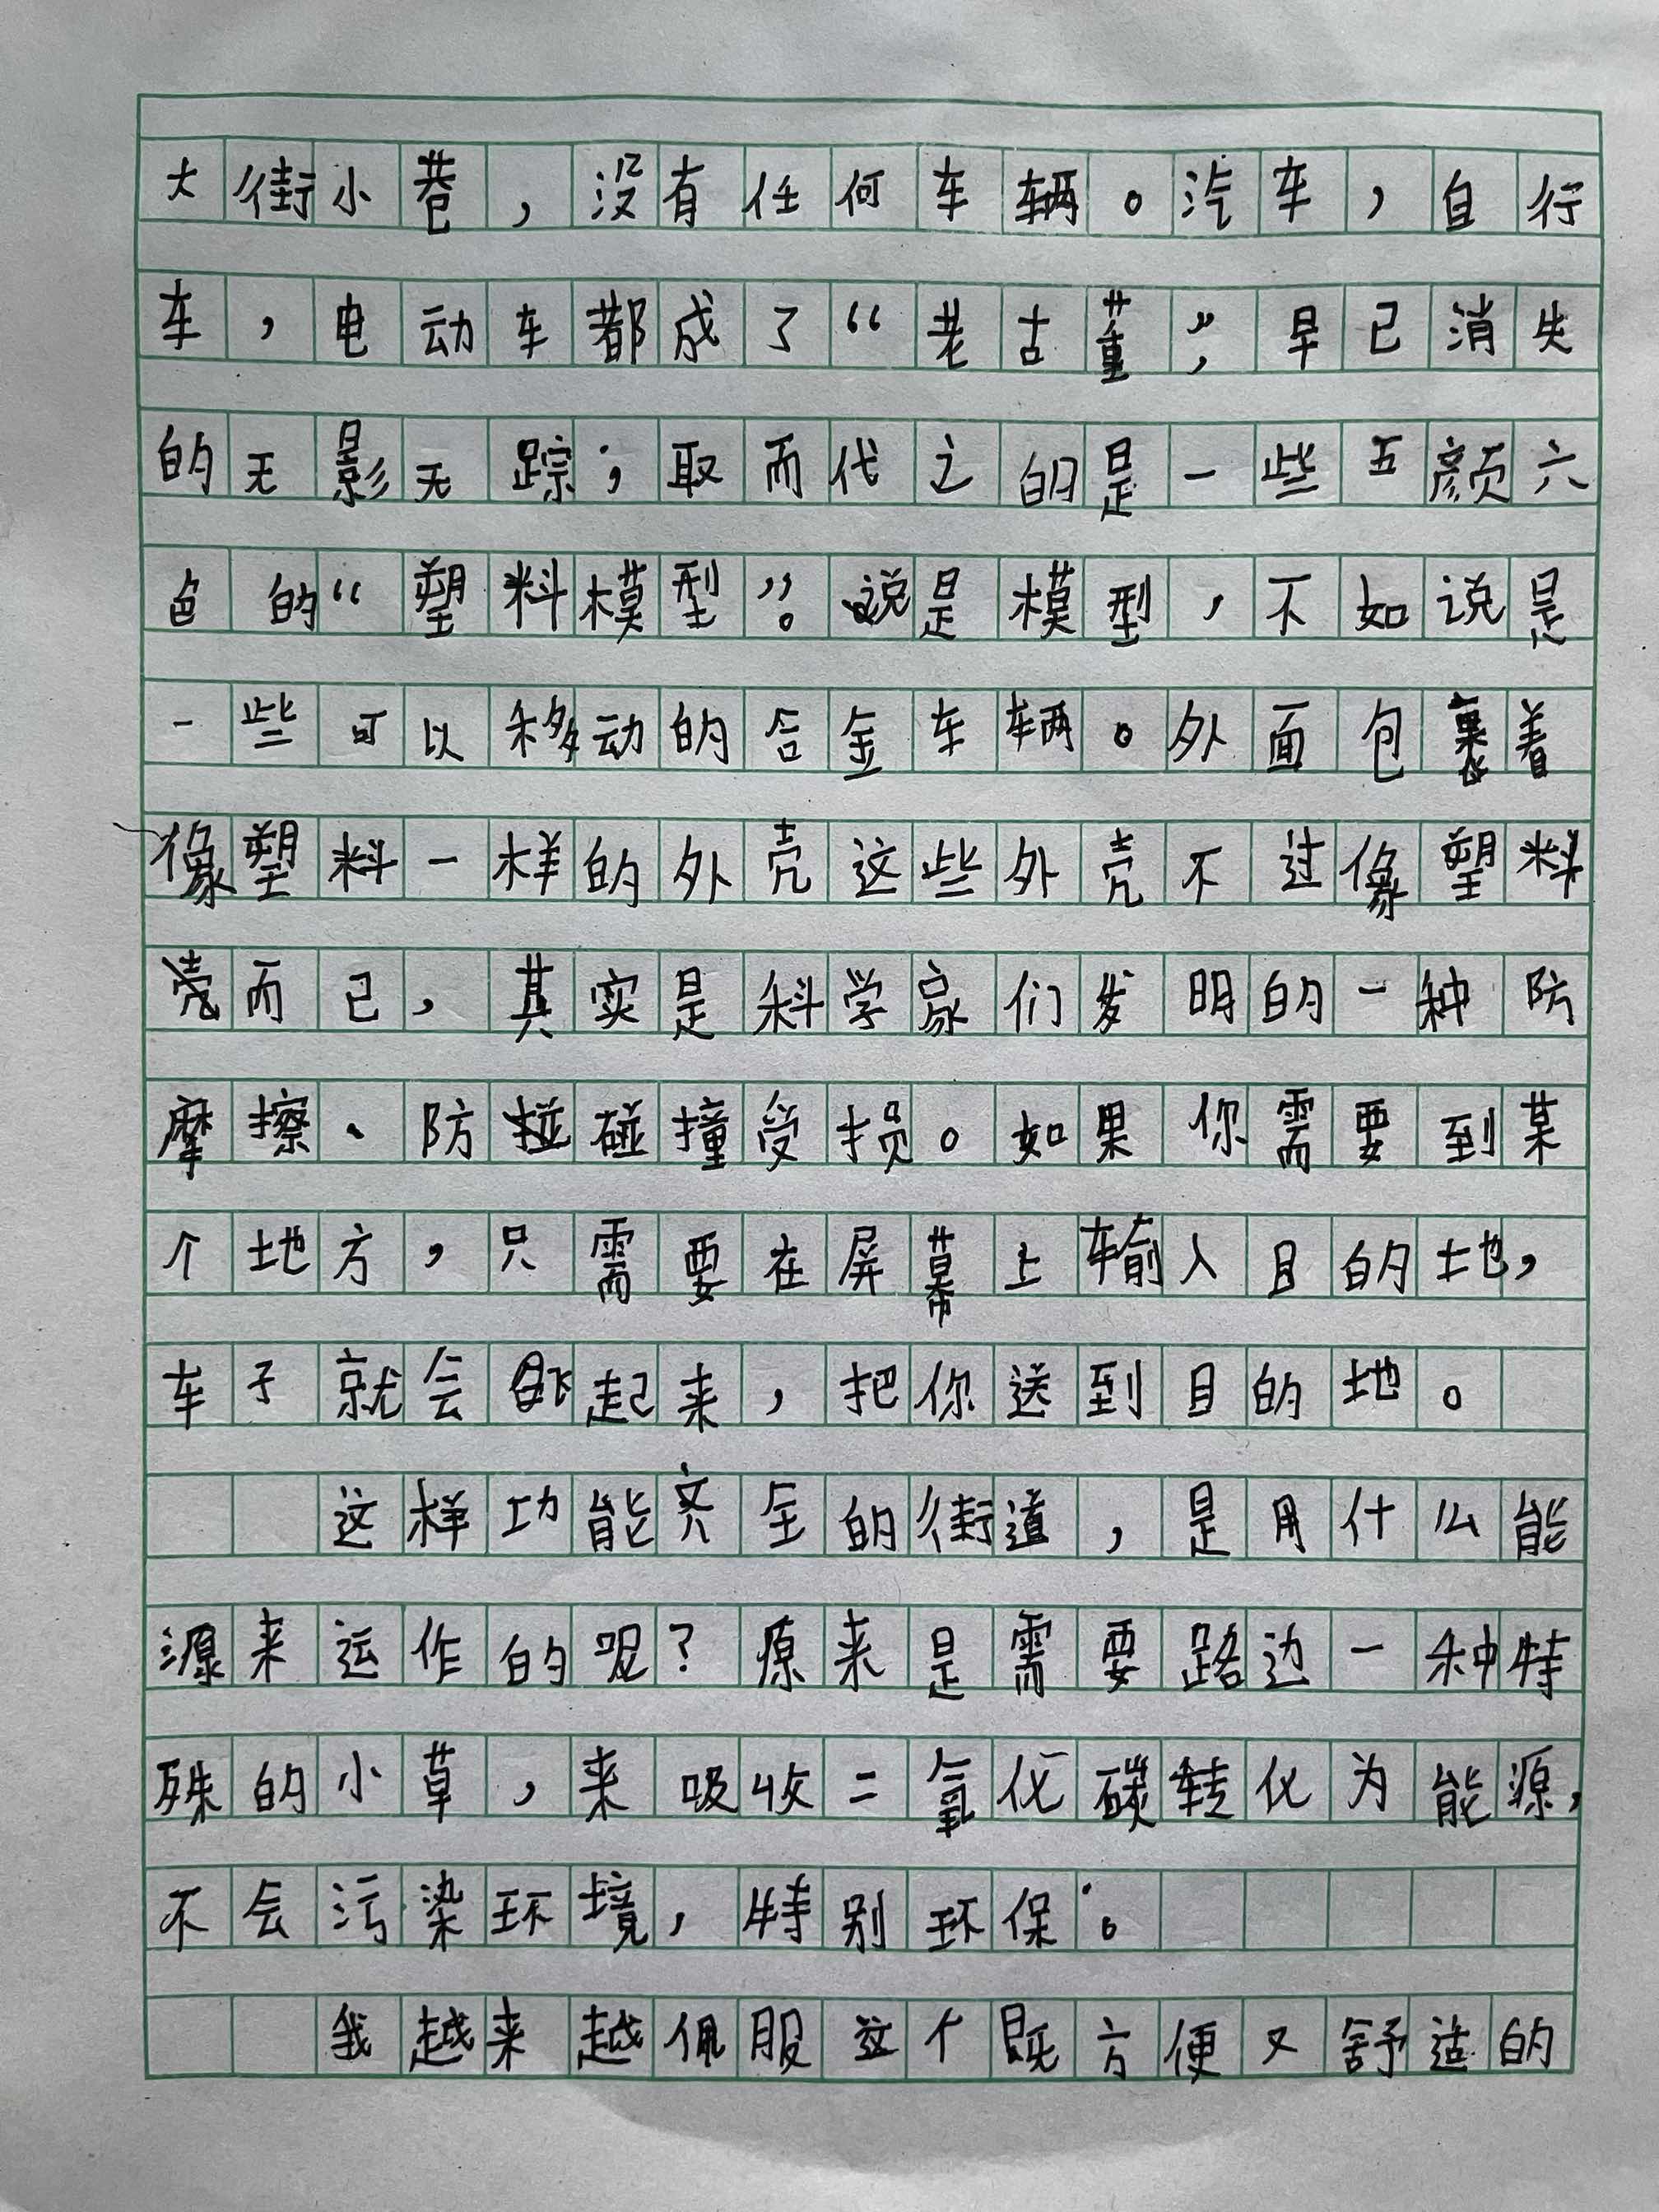 大街小巷，没有任何车辆。汽车，自行
车，电动车都成了“老古董”，早已消失
的无影无踪；取而代之的是一些五颜六
色的“塑料模型”。说是模型，不如说是
一些可以移动的合金车辆。外面包裹着
像塑料一样的外壳这些外壳不过像塑料
壳而已，其实是科学家们发明的一种防
摩擦、防碰撞受损。如果你需要到某
个地方，只需要在屏幕上输入目的地，
车子就会起来，把你送到目的地。
这样功能齐全的街道，是用什么能
源来运作的呢？原来是需要路边一种特
殊的小草，来吸收二氧化碳转化为能源，
不会污染环境，特别环保。
我越来越佩服这个既方便又舒适的